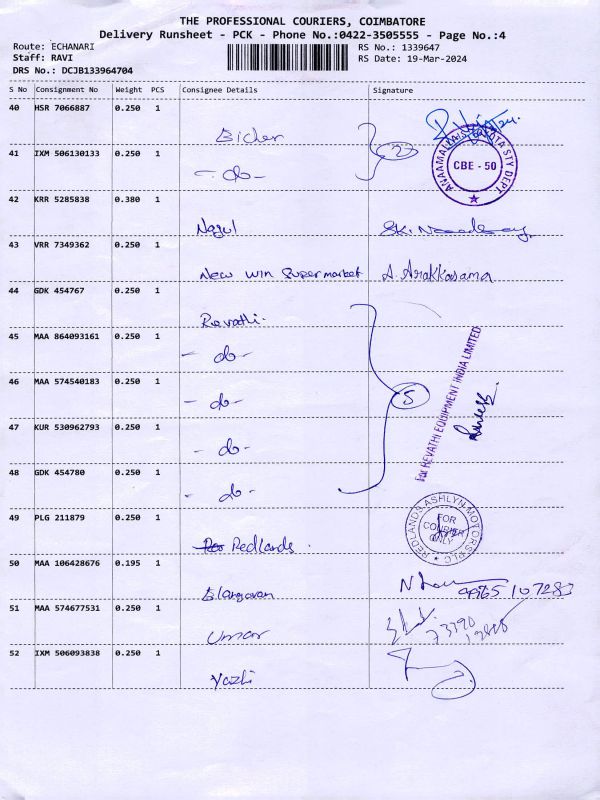 THE PROFESSIONAL COURIERS, COIMBATORE
Delivery Runsheet - PCK - Phone No.:0422-3505555 - Page No.:4
Route: ECHANARI RS No.: 1339647
Staff: RAVI RS Date: 19-Mar-2024
DRS No.: DCJB133964704
S No Consignment No Weight PCS Consignee Details Signature
40 HSR 7066887 0.250 1
41 IXM 506130133 0.250 1
- do -
2
ANAAMALAIS TOYOTA STY DEPT
CBE - 50
42 KRR 5285838 0.380 1
43 VRR 7349362 0.250 1
New win Supermarket
44 GDK 454767 0.250 1
Revathi.
45 MAA 864093161 0.250 1
- do -
46 MAA 574540183 0.250 1
- do -
5
For REVATHI EQUIPMENT INDIA LIMITED
Suresh
47 KUR 530962793 0.250 1
- do -
48 GDK 454780 0.250 1
- do -
49 PLG 211879 0.250 1
Redlands.
REDLANDS ASHLYN MOTORS PLC
FOR COURIER ONLY
50 MAA 106428676 0.195 1
Elangovan
51 MAA 574677531 0.250 1
Umar
52 IXM 506093838 0.250 1
Yazhi